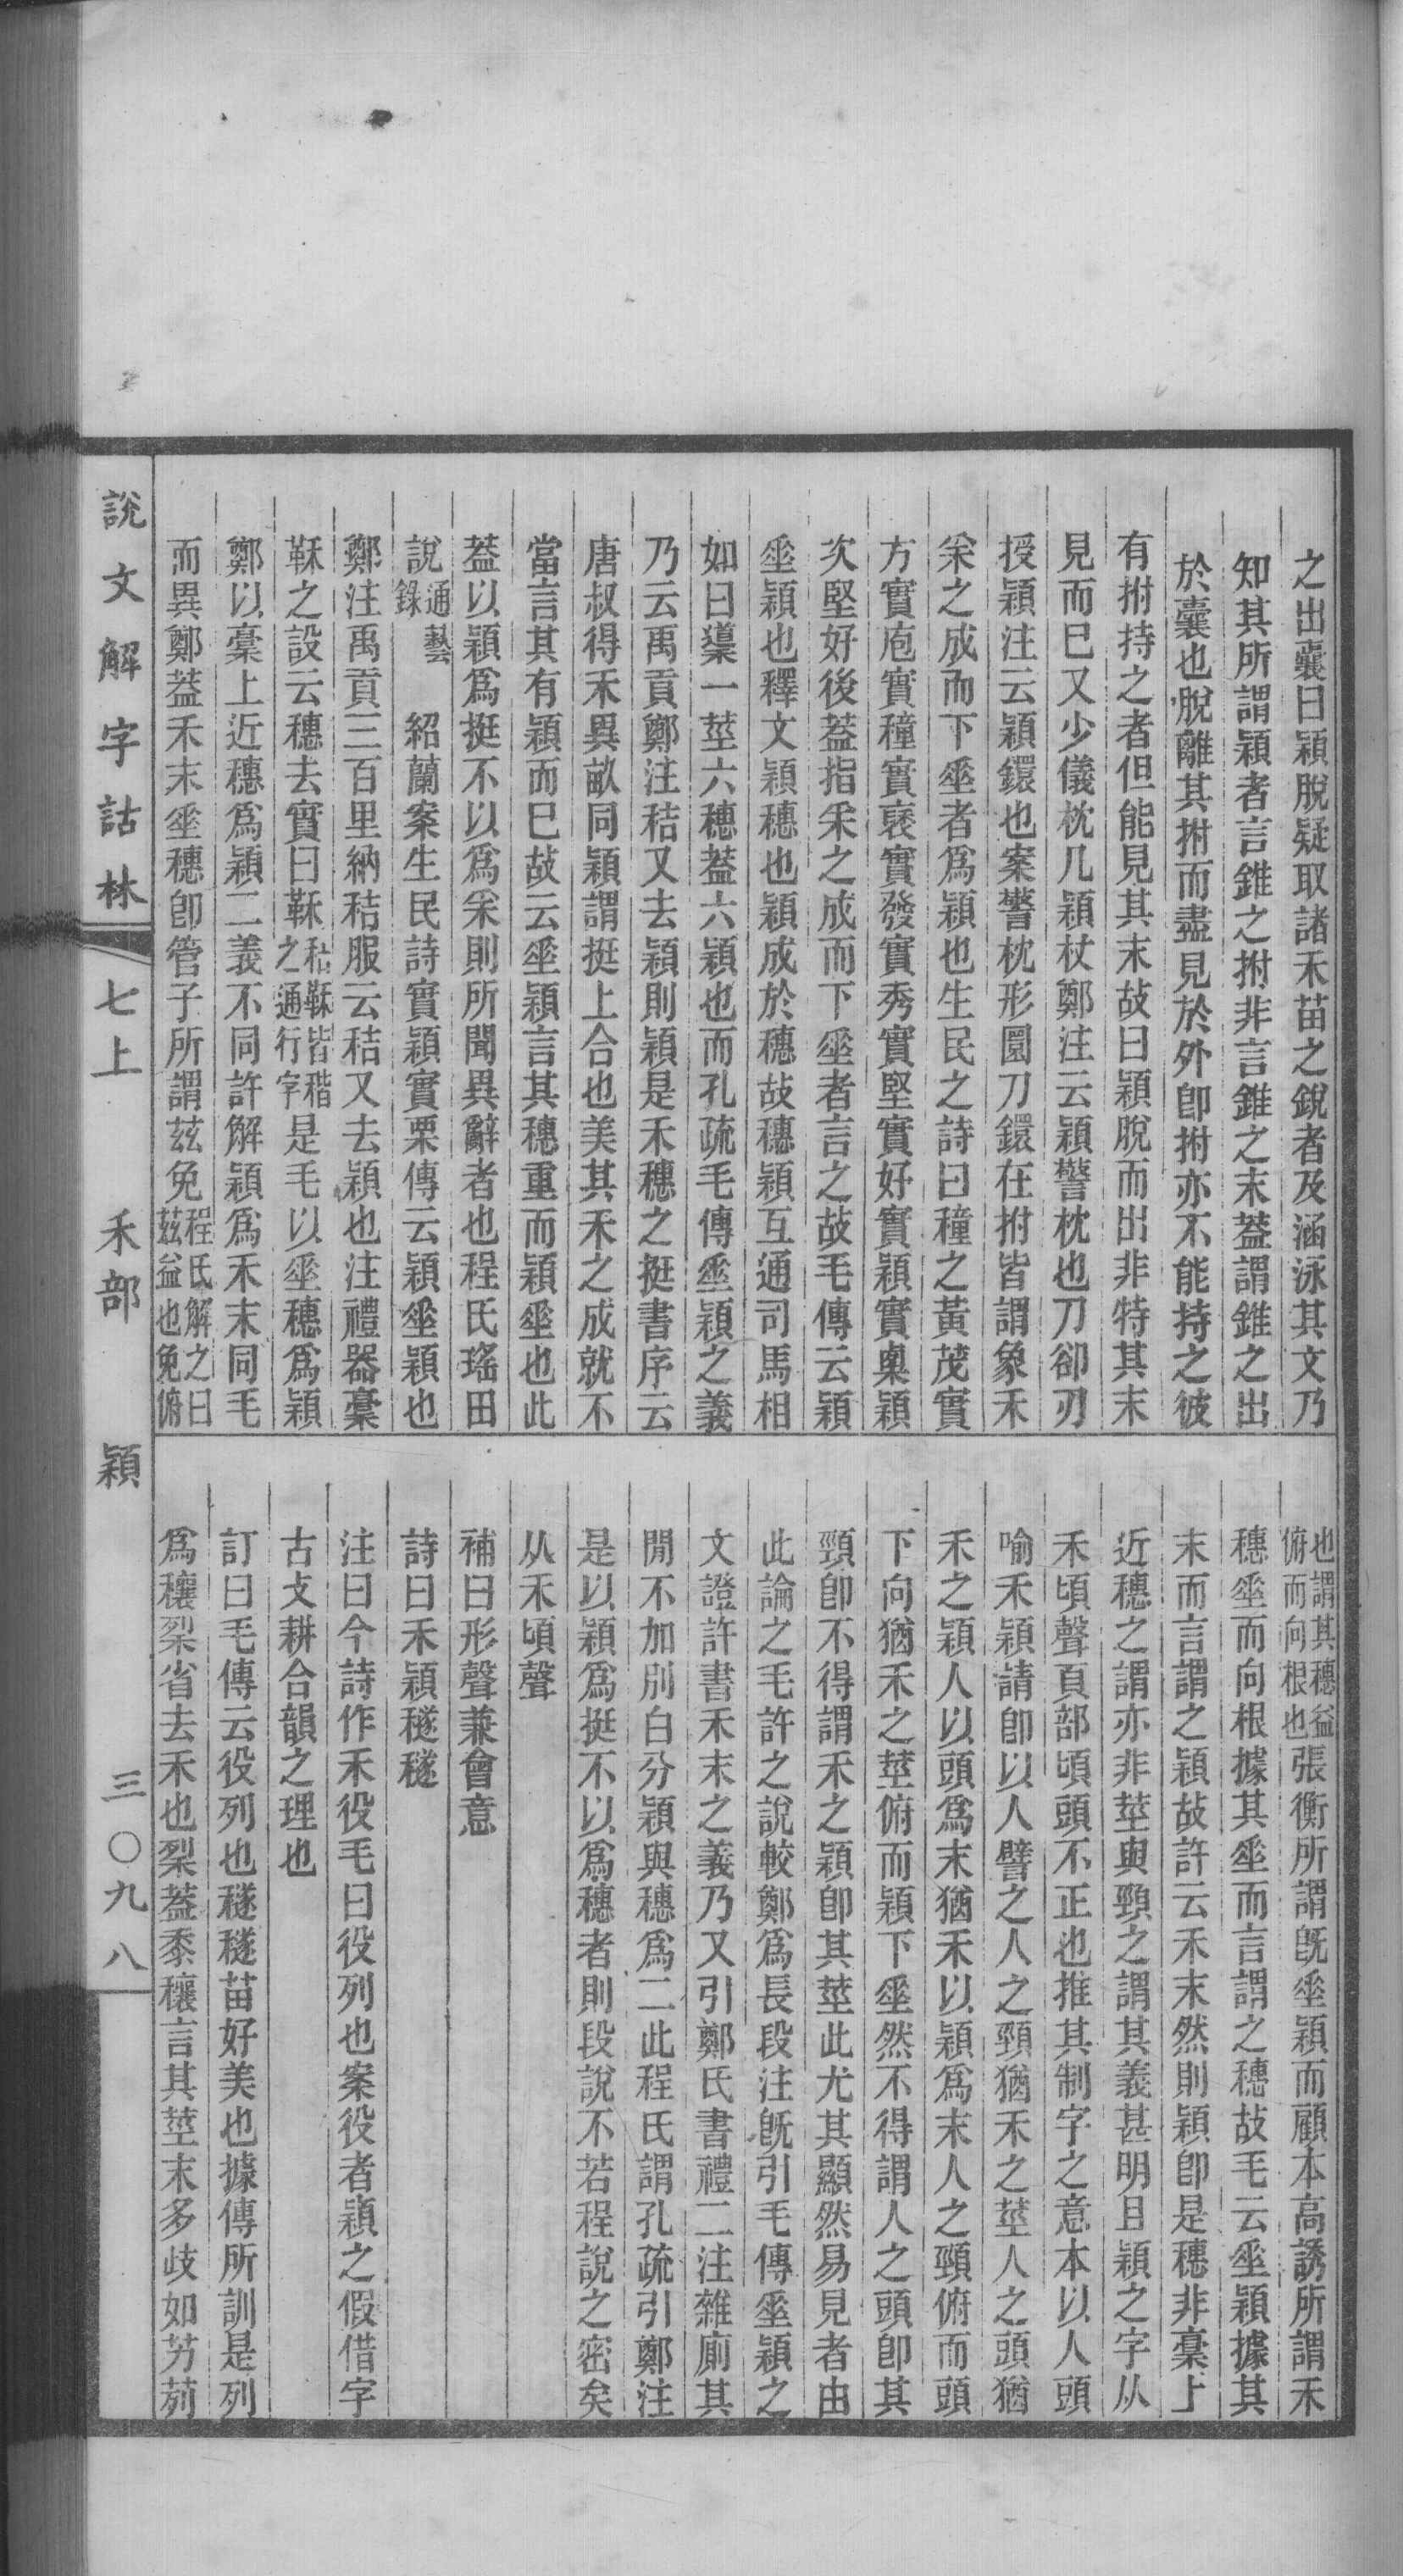 之出囊曰穎脫疑取諸禾苗之銳者及涵泳其文乃
知其所謂穎者言錐之拊非言錐之末蓋謂錐之出
於囊也脫離其拊而盡見於外卽拊亦不能持之彼
有拊持之者但能見其末故曰穎脫而出非特其末
見而巳又少儀枕几穎杖鄭注云穎警枕也刀卻刃
授穎注云穎鐶也案警枕形圜刀鐶在拊皆謂象禾
采之成而下𡍮者爲穎也生民之詩曰種之黃茂實
方實庖實種實褎實發實秀實堅實好實穎實㮚穎
次堅好後蓋指采之成而下𡍮者言之故毛傳云穎
𡍮穎也釋文穎穗也穎成於穗故穗穎互通司馬相
如曰䆃一莖六穗蓋六穎也而孔疏毛傳𡍮穎之義
乃云禹貢鄭注秸又去穎則穎是禾穗之挺書序云
唐叔得禾異畝同穎謂挺上合也美其禾之成就不
當言其有穎而巳故云𡍮穎言其穗重而穎𡍮也此
蓋以穎爲挺不以爲采則所聞異辭者也程氏瑤田
說通藝錄　紹蘭案生民詩實穎實栗傳云穎𡍮穎也
鄭注禹貢三百里納秸服云秸又去穎也注禮器稾
鞂之設云穗去實曰鞂秸鞂皆稭之通行字是毛以𡍮穗爲穎
鄭以稾上近穗爲穎二義不同許解穎爲禾末同毛
而異鄭蓋禾末𡍮穗卽管子所謂茲免程氏解之曰茲益也免俯
也謂其穗益俯而向根也張衡所謂旣𡍮穎而顧本高誘所謂禾
穗𡍮而向根據其𡍮而言謂之穗故毛云𡍮穎據其
末而言謂之穎故許云禾末然則穎卽是穗非稾上
近穗之謂亦非莖與頸之謂其義甚明且穎之字从
禾頃聲頁部頃頭不正也推其制字之意本以人頭
喻禾穎請卽以人譬之人之頸猶禾之莖人之頭猶
禾之穎人以頭爲末猶禾以穎爲末人之頸俯而頭
下向猶禾之莖俯而穎下𡍮然不得謂人之頭卽其
頸卽不得謂禾之穎卽其莖此尤其顯然易見者由
此論之毛許之說較鄭爲長段注旣引毛傳𡍮穎之
文證許書禾末之義乃又引鄭氏書禮二注雜廁其
閒不加別白分穎與穗爲二此程氏謂孔疏引鄭注
是以穎爲挺不以爲穗者則段說不若程說之密矣
从禾頃聲
補曰形聲兼會意
詩曰禾穎穟穟
注曰今詩作禾役毛曰役列也案役者穎之假借字
古攴耕合韻之理也
訂曰毛傳云役列也穟穟苗好美也據傳所訓是列
爲穰梨省去禾也梨蓋黍穰言其莖末多歧如艻茢
說文解字詁林　七上　禾部　穎　三〇九八